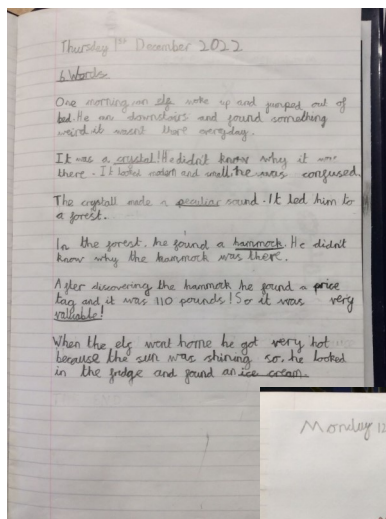 Thursday 1st December 2022
6 Words
One morning an elf woke up and jumped out of
bed. He ran downstairs and found something
weird it wasnt there everyday.
It was a crystal! He didn't know why it was
there. It looked modern and small, he was confused.
The crystall made a peculiar sound. It led him to
a forest.
In the forest, he found a hammock. He didn't
know why the hammock was there.
After discovering the hammock he found a price
tag and it was 110 pounds! So it was very
valuable!
When the elf went home he got very hot
because the sun was shining so, he looked
in the fridge and found an ice cream.
Monday 12